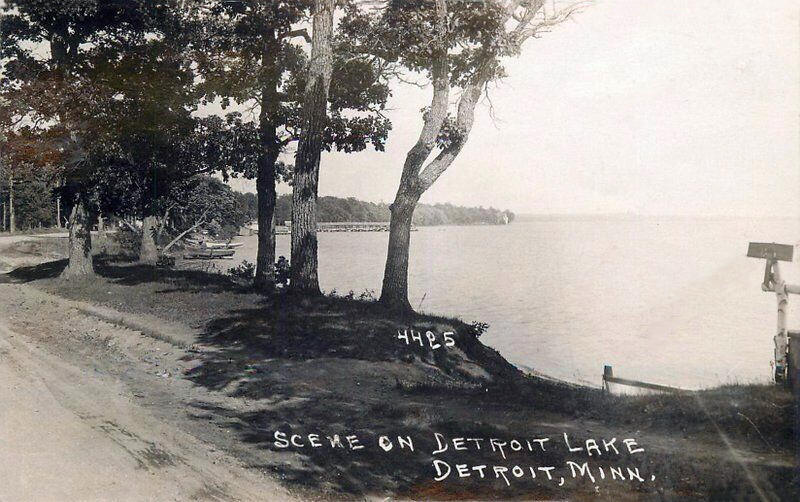 4425
SCENE ON DETROIT LAKE
DETROIT, MINN.